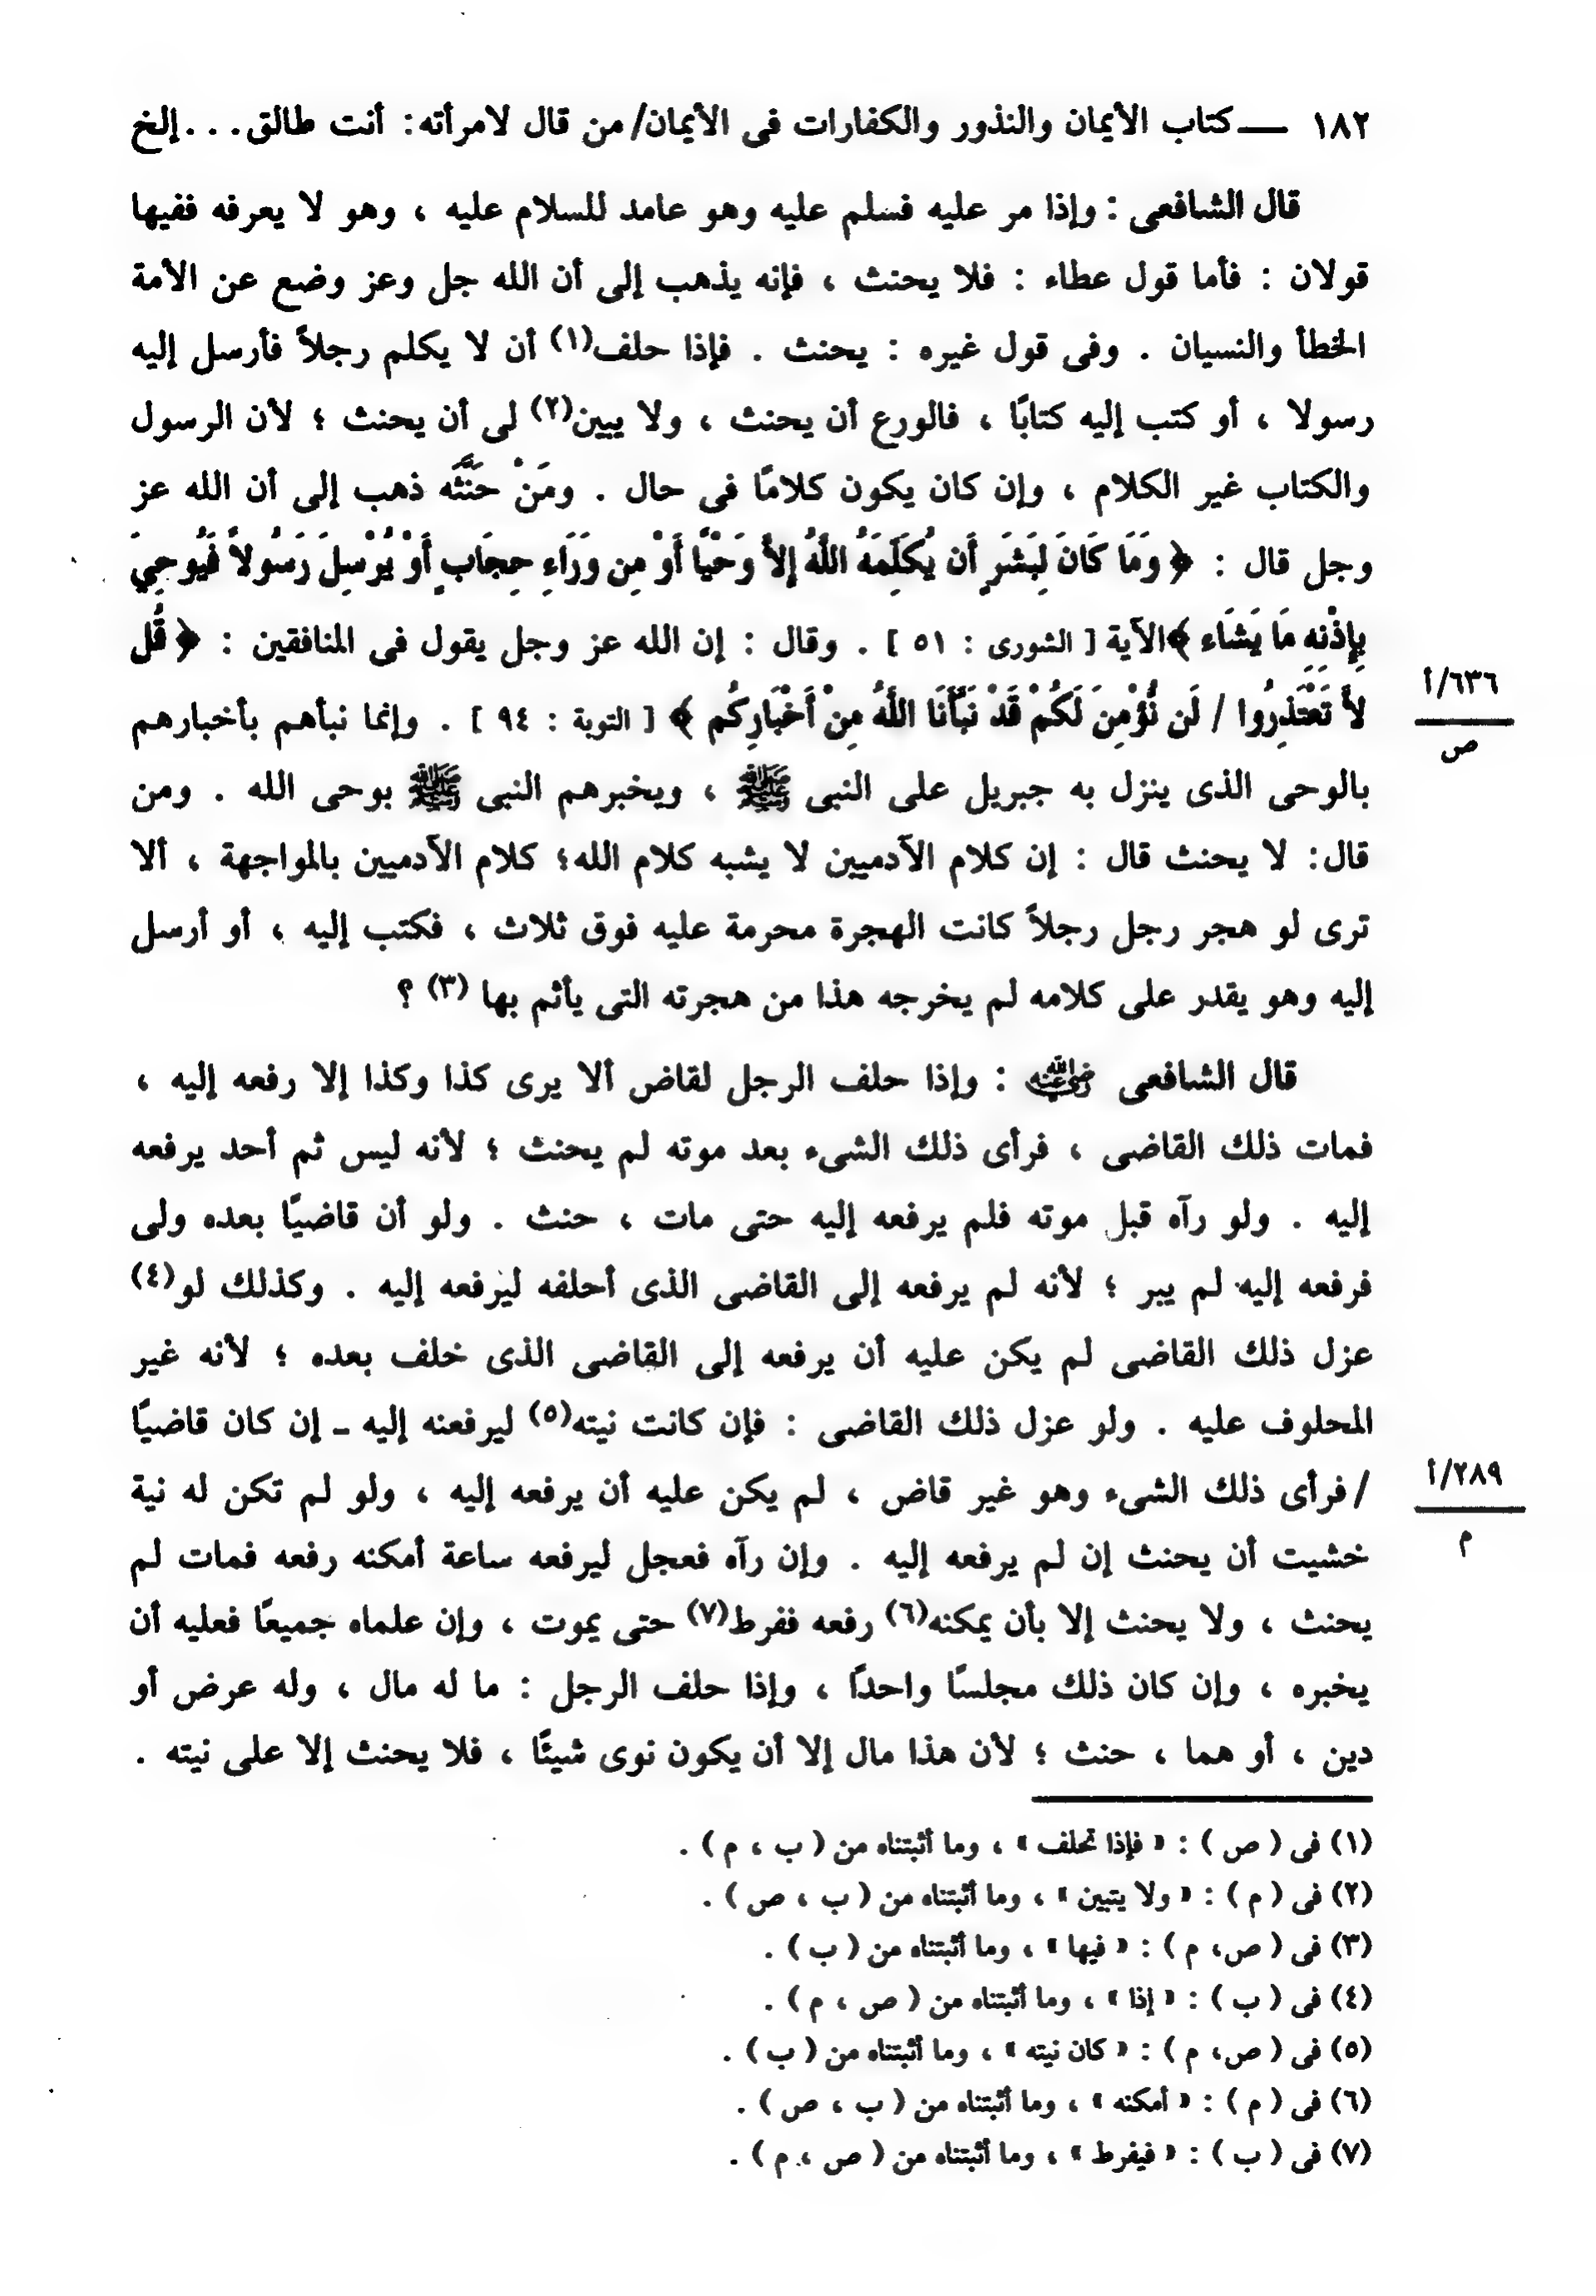 ١٨٢ ــــ كتاب الأيمان والنذور والكفارات فى الأيمان/ من قال لامرأته: أنت طالق. . . إلخ
قال الشافعى : وإذا مر عليه فسلم عليه وهو عامد للسلام عليه ، وهو لا يعرفه ففيها
قولان : فأما قول عطاء : فلا يحنث ، فإنه يذهب إلى أن الله جل وعز وضع عن الأمة
الخطأ والنسيان . وفى قول غيره : يحنث . فإذا حلف(١) أن لا يكلم رجلاً فأرسل إليه
رسولا ، أو كتب إليه كتابًا ، فالورع أن يحنث ، ولا يبين(٢) لى أن يحنث ؛ لأن الرسول
والكتاب غير الكلام ، وإن كان يكون كلامًا فى حال . ومَنْ حَنَّثَه ذهب إلى أن الله عز
وجل قال : ﴿ وَمَا كَانَ لِبَشَرٍ أَن يُكَلِّمَهُ اللَّهُ إِلاَّ وَحْيًا أَوْ مِن وَرَاءِ حِجَابٍ أَوْ يُرْسِلَ رَسُولاً فَيُوحِيَ
بِإِذْنِهِ مَا يَشَاء ﴾الآية [ الشورى : ٥١ ] . وقال : إن الله عز وجل يقول فى المنافقين : ﴿ قُل
لاَّ تَعْتَذِرُوا / لَن نُّؤْمِنَ لَكُمْ قَدْ نَبَّأَنَا اللَّهُ مِنْ أَخْبَارِكُم ﴾ [ التوبة : ٩٤ ] . وإنما نبأهم بأخبارهم
٦٣٦/أ
ص
بالوحى الذى ينزل به جبريل على النبى ﷺ ، ويخبرهم النبى ﷺ بوحى الله . ومن
قال: لا يحنث قال : إن كلام الآدميين لا يشبه كلام الله؛ كلام الآدميين بالمواجهة ، ألا
ترى لو هجر رجل رجلاً كانت الهجرة محرمة عليه فوق ثلاث ، فكتب إليه ، أو أرسل
إليه وهو يقدر على كلامه لم يخرجه هذا من هجرته التى يأثم بها (٣) ؟
قال الشافعى رضي الله عنه : وإذا حلف الرجل لقاض ألا يرى كذا وكذا إلا رفعه إليه ،
فمات ذلك القاضى ، فرأى ذلك الشىء بعد موته لم يحنث ؛ لأنه ليس ثم أحد يرفعه
إليه . ولو رآه قبل موته فلم يرفعه إليه حتى مات ، حنث . ولو أن قاضيًا بعده ولى
فرفعه إليه لم يبر ؛ لأنه لم يرفعه إلى القاضى الذى أحلفه ليرفعه إليه . وكذلك لو(٤)
عزل ذلك القاضى لم يكن عليه أن يرفعه إلى القاضى الذى خلف بعده ؛ لأنه غير
المحلوف عليه . ولو عزل ذلك القاضى : فإن كانت نيته(٥) ليرفعنه إليه ـ إن كان قاضيًا
/ فرأى ذلك الشىء وهو غير قاض ، لم يكن عليه أن يرفعه إليه ، ولو لم تكن له نية
٢٨٩/أ
م
خشيت أن يحنث إن لم يرفعه إليه . وإن رآه فعجل ليرفعه ساعة أمكنه رفعه فمات لم
يحنث ، ولا يحنث إلا بأن يمكنه(٦) رفعه ففرط(٧) حتى يموت ، وإن علماه جميعًا فعليه أن
يخبره ، وإن كان ذلك مجلسًا واحدًا ، وإذا حلف الرجل : ما له مال ، وله عرض أو
دين ، أو هما ، حنث ؛ لأن هذا مال إلا أن يكون نوى شيئًا ، فلا يحنث إلا على نيته .
(١) فى ( ص ) : « فإذا تحلف » ، وما أثبتناه من ( ب ، م ) .
(٢) فى ( م ) : « ولا يتبين » ، وما أثبتناه من ( ب ، ص ) .
(٣) فى ( ص، م ) : « فيها » ، وما أثبتناه من ( ب ) .
(٤) فى ( ب ) : « إذا » ، وما أثبتناه من ( ص ، م ) .
(٥) فى ( ص، م ) : « كان نيته » ، وما أثبتناه من ( ب ) .
(٦) فى ( م ) : « أمكنه » ، وما أثبتناه من ( ب ، ص ) .
(٧) فى ( ب ) : « فيفرط » ، وما أثبتناه من ( ص ، م ) .